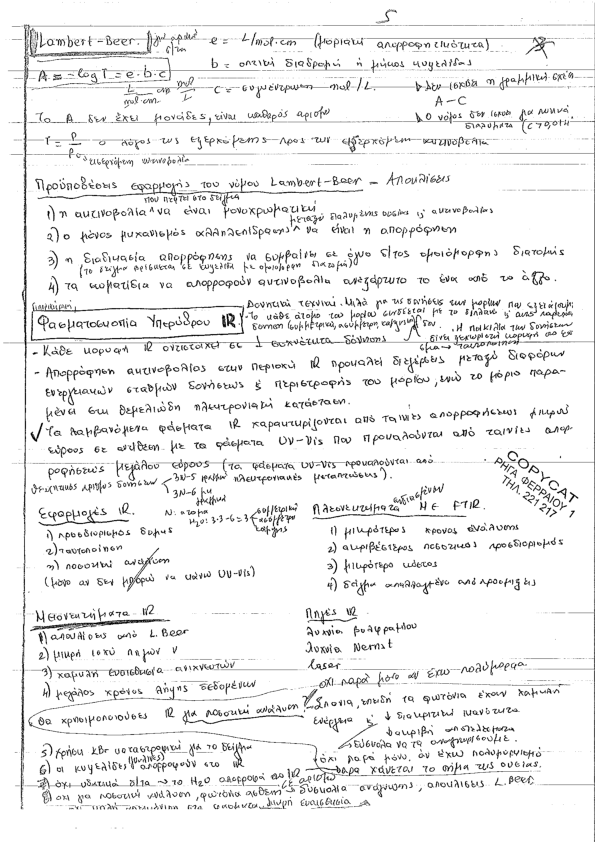 5
Lambert-Beer. για αραιά δ/τα e = L/mol·cm (μοριακή απορροφητικότητα)
A = -logT = e·b·c b = οπτική διαδρομή ή μήκος κυψελίδας
L/mol·cm cm mol/L c = συγκέντρωση mol/L. Δεν ισχύει η γραμμική σχέση A-C
Το A δεν έχει μονάδες, είναι καθαρός αριθμός Ο νόμος δεν ισχύει για πυκνά διαλύματα (C>0,01M
T = P/P₀ ο λόγος της εξερχόμενης προς την εισερχόμενη ακτινοβολία
εισερχόμενη ακτινοβολία
Προϋποθέσεις εφαρμογής του νόμου Lambert-Beer - Αποκλίσεις
1) η ακτινοβολία που πέφτει στο δείγμα να είναι μονοχρωματική
2) ο μόνος μηχανισμός αλληλεπίδρασης μεταξύ διαλυμένης ουσίας ς ακτινοβολίας να είναι η απορρόφηση
3) η διαδικασία απορρόφησης να συμβαίνει σε όγκο δ/τος ομοιόμορφης διατομής
(το δείγμα βρίσκεται σε κυψελίδα με ομοιόμορφη διατομή)
4) τα σωματίδια να απορροφούν ακτινοβολία ανεξάρτητο το ένα από το άλλο.
Φασματοσκοπία Υπερύθρου IR. Δονητική τεχνική. Μιλά για τις δονήσεις των μορίων
- Κάθε κορυφή IR αντιστοιχεί σε 1 συχνότητα δόνησης
- Απορρόφηση ακτινοβολίας στην περιοχή IR προκαλεί διεγέρσεις μεταξύ διαφόρων
ενεργειακών σταθμών δονήσεως ς περιστροφής του μορίου, ενώ το μόριο παρα-
μένει στη θεμελιώδη ηλεκτρονιακή κατάσταση.
✓ Τα λαμβανόμενα φάσματα IR χαρακτηρίζονται από ταινίες απορροφήσεως μικρού
εύρους σε αντίθεση με τα φάσματα UV-Vis που προκαλούνται από ταινίες απορ-
ροφήσεως μεγάλου εύρους (τα φάσματα UV-Vis προκαλούνται από
ηλεκτρονικές μεταπτώσεις).
θεωρητικός αριθμός δονήσεων 3N-5 γραμμικά
3N-6 μη γραμμικά
COPYCAT
ΡΗΓΑ ΦΕΡΡΑΙΟΥ 1
ΤΗΛ. 221 217
Εφαρμογές IR. N: άτομα
H₂O: 3·3-6=3
1) προσδιορισμός δομής
2) ταυτοποίηση
3) ποσοτική ανάλυση
(μόνο αν δεν μπορώ να κάνω UV-Vis)
Πλεονεκτήματα ΜΕ FTIR.
1) μικρότερος χρόνος ανάλυσης
2) ακριβέστερος ποσοτικός προσδιορισμός
3) μικρότερο κόστος
4) δείγμα απαλλαγμένο από προσμίξεις
Μειονεκτήματα IR
1) αποκλίσεις από L. Beer
2) μικρή ισχύ πηγών ν
3) χαμηλή ευαισθησία ανιχνευτών
4) μεγάλος χρόνος λήψης δεδομένων
Πηγές IR
λυχνία βολφραμίου
λυχνία Nernst
laser
όχι παρά μόνο αν έχω πολύμορφα
Θα χρησιμοποιούσες IR για ποσοτική ανάλυση; Σπάνια, επειδή τα φωτόνια έχουν χαμηλή
ενέργεια ς ↓ διακριτική ικανότητα
↓ ακριβή αποτελέσματα
δύσκολα να τα αναγνωρίσουμε.
5) χρήση KBr υποστρώματος για το δείγμα
όχι παρά μόνο, αν έχω πολυμορφισμό
6) οι κυψελίδες απορροφούν στο IR
χάνεται το σήμα της ουσίας.
7) όχι υδατικά δ/τα → το H₂O απορροφά στο IR
8) όχι για ποσοτική ανάλυση, φωτόνια ασθενή → δυσκολία ανάγνωσης, αποκλίσεις L. Beer.